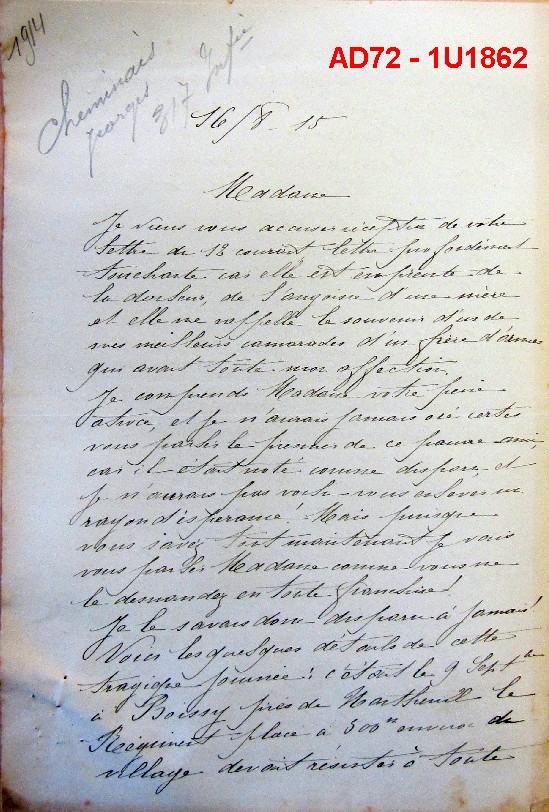 1914
AD72 - 1U1862
Cheminais
Georges
317 Infie
16/8-15
Madame
Je viens vous accuser réception de votre
lettre du 12 courant lettre profondément
touchante car elle est empreinte de
la douleur, de l'angoisse d'une mère
et elle me rappelle le souvenir d'un de
mes meilleurs camarades d'un frère d'armes
qui avait toute mon affection.
Je comprends Madame votre peine
atroce, et je n'aurais jamais osé certes
vous parler le premier de ce pauvre ami,
car il était noté comme disparu, et
je n'aurais pas voulu vous enlever un
rayon d'espérance! Mais puisque
vous savez tout maintenant je vais
vous parler Madame comme vous me
le demandez en toute franchise!
Je le savais donc disparu à jamais!
Voici les quelques détails de cette
tragique journée: c'était le 9 Septbre
à Boissy près de Nantheuil le
Régiment placé à 500m environ du
village devait résister à toute